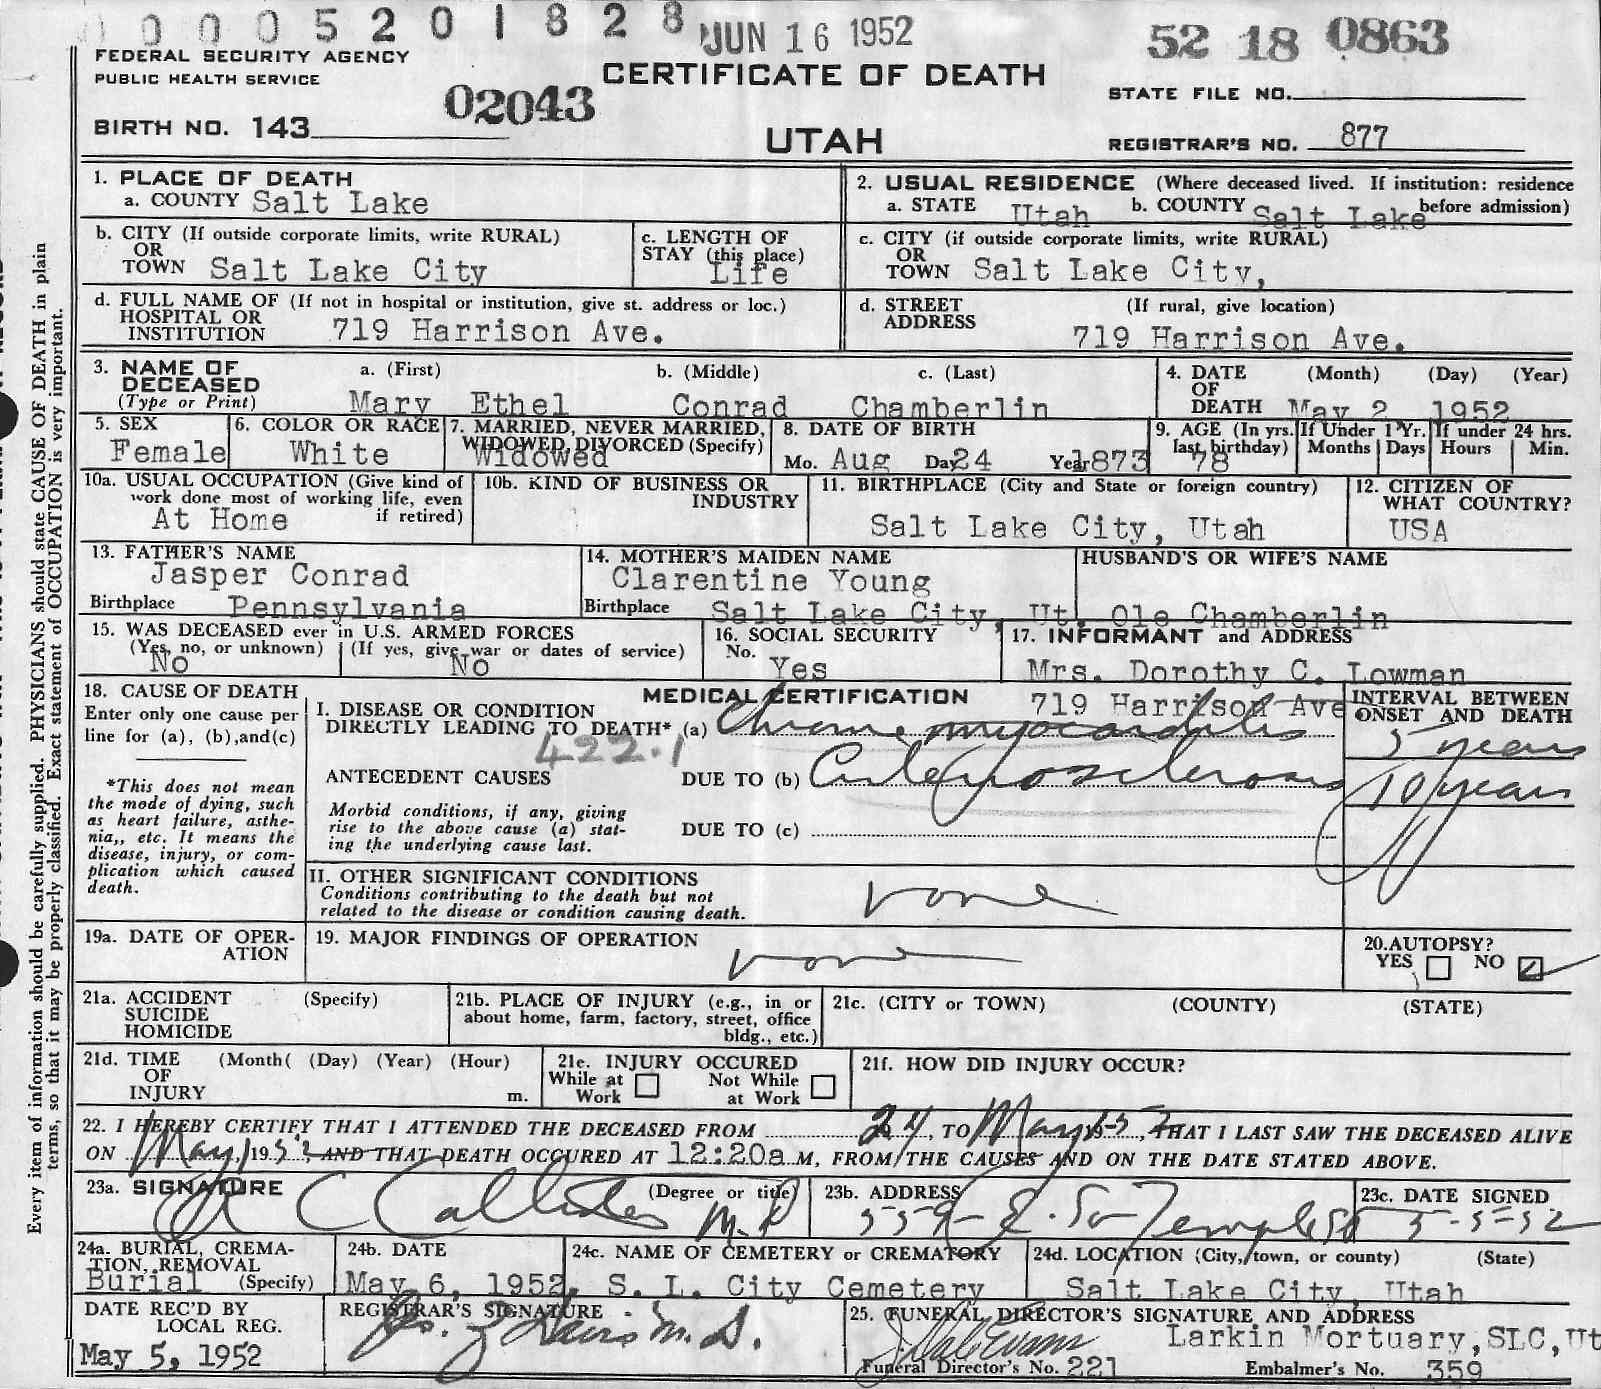 0005201828 JUN 16 1952 52 18 0863
FEDERAL SECURITY AGENCY
PUBLIC HEALTH SERVICE
CERTIFICATE OF DEATH
STATE FILE NO.
02043
BIRTH NO. 143
UTAH
REGISTRAR'S NO. 877
1. PLACE OF DEATH
a. COUNTY Salt Lake
2. USUAL RESIDENCE (Where deceased lived. If institution: residence
a. STATE Utah b. COUNTY Salt Lake before admission)
b. CITY (If outside corporate limits, write RURAL)
OR
TOWN Salt Lake City
c. LENGTH OF
STAY (this place)
Life
c. CITY (if outside corporate limits, write RURAL)
OR
TOWN Salt Lake City,
d. FULL NAME OF (If not in hospital or institution, give st. address or loc.)
HOSPITAL OR
INSTITUTION 719 Harrison Ave.
d. STREET (If rural, give location)
ADDRESS
719 Harrison Ave.
3. NAME OF a. (First) b. (Middle) c. (Last)
DECEASED
(Type or Print) Mary Ethel Conrad Chamberlin
4. DATE (Month) (Day) (Year)
OF
DEATH May 2 1952
5. SEX
Female
6. COLOR OR RACE
White
7. MARRIED, NEVER MARRIED,
WIDOWED, DIVORCED (Specify)
Widowed
8. DATE OF BIRTH
Mo. Aug Day 24 Year 1873
9. AGE (In yrs. last birthday)
78
If Under 1 Yr.
Months Days
If under 24 hrs.
Hours Min.
10a. USUAL OCCUPATION (Give kind of
work done most of working life, even
At Home if retired)
10b. KIND OF BUSINESS OR
INDUSTRY
11. BIRTHPLACE (City and State or foreign country)
Salt Lake City, Utah
12. CITIZEN OF
WHAT COUNTRY?
USA
13. FATHER'S NAME
Jasper Conrad
Birthplace Pennsylvania
14. MOTHER'S MAIDEN NAME
Clarentine Young
Birthplace Salt Lake City, Ut.
HUSBAND'S OR WIFE'S NAME
Ole Chamberlin
15. WAS DECEASED ever in U.S. ARMED FORCES
(Yes, no, or unknown) (If yes, give war or dates of service)
No No
16. SOCIAL SECURITY
No. Yes
17. INFORMANT and ADDRESS
Mrs. Dorothy C. Lowman
719 Harrison Ave
18. CAUSE OF DEATH
Enter only one cause per
line for (a), (b),and(c)
*This does not mean
the mode of dying, such
as heart failure, asthe-
nia,, etc. It means the
disease, injury, or com-
plication which caused
death.
MEDICAL CERTIFICATION
INTERVAL BETWEEN
ONSET AND DEATH
I. DISEASE OR CONDITION
DIRECTLY LEADING TO DEATH* (a) Chronic myocarditis 5 years
422.1
ANTECEDENT CAUSES DUE TO (b) Arteriosclerosis 10 years
Morbid conditions, if any, giving
rise to the above cause (a) stat-
ing the underlying cause last.
DUE TO (c)
II. OTHER SIGNIFICANT CONDITIONS
Conditions contributing to the death but not
related to the disease or condition causing death.
none
19a. DATE OF OPER-
ATION
19. MAJOR FINDINGS OF OPERATION
none
20.AUTOPSY?
YES NO
21a. ACCIDENT (Specify)
SUICIDE
HOMICIDE
21b. PLACE OF INJURY (e.g., in or
about home, farm, factory, street, office
bldg., etc.)
21c. (CITY or TOWN) (COUNTY) (STATE)
21d. TIME (Month( (Day) (Year) (Hour)
OF
INJURY m.
21e. INJURY OCCURED
While at Work Not While at Work
21f. HOW DID INJURY OCCUR?
22. I HEREBY CERTIFY THAT I ATTENDED THE DECEASED FROM 24, TO May 1952, THAT I LAST SAW THE DECEASED ALIVE
ON May, 1952, AND THAT DEATH OCCURED AT 12:20a M, FROM THE CAUSES AND ON THE DATE STATED ABOVE.
23a. SIGNATURE (Degree or title)
M.D.
23b. ADDRESS
559 E. So Temple St
23c. DATE SIGNED
5-5-52
24a. BURIAL, CREMA-
TION, REMOVAL
Burial (Specify)
24b. DATE
May 6, 1952,
24c. NAME OF CEMETERY or CREMATORY
S. L. City Cemetery
24d. LOCATION (City, town, or county) (State)
Salt Lake City, Utah
DATE REC'D BY
LOCAL REG.
May 5, 1952
REGISTRAR'S SIGNATURE
Davis M.D.
25. FUNERAL DIRECTOR'S SIGNATURE AND ADDRESS
Evans Larkin Mortuary, SLC, Ut
Funeral Director's No. 221 Embalmer's No. 359
Every item of information should be carefully supplied. PHYSICIANS should state CAUSE OF DEATH in plain
terms, so that it may be properly classified. Exact statement of OCCUPATION is very important.